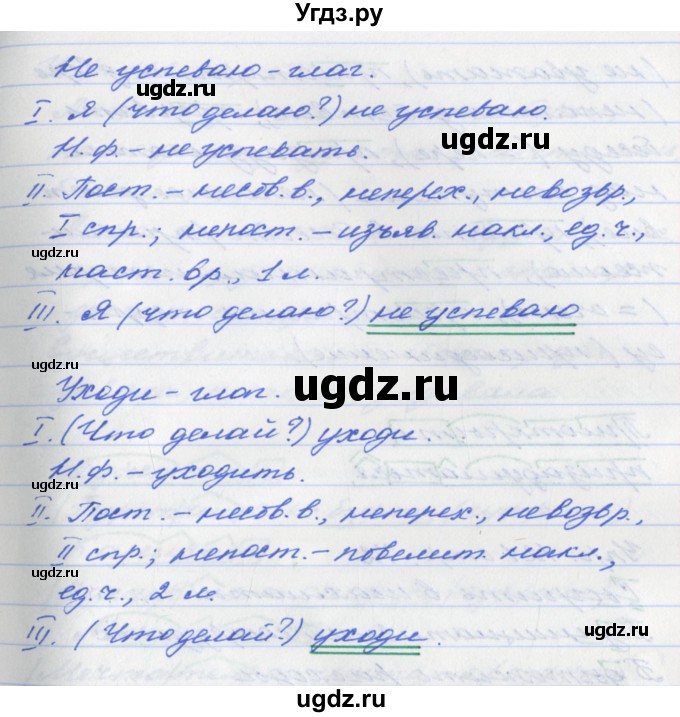 Угдз.ру
Не успеваю – глаг.
I. Я (что делаю?) не успеваю.
Н.ф. – не успевать.
II. Пост. – несов.в., неперех., невозвр.,
I спр.; непост. – изъяв. накл., ед.ч.,
наст. вр., 1 л.
III. Я (что делаю?) не успеваю
Уходи – глаг.
I. (Что делай?) уходи.
Н.ф. – уходить.
II. Пост. – несов.в., неперех., невозвр.,
II спр.; непост. – повелит. накл.,
ед.ч., 2 л.
III. (Что делай?) уходи.
ugdz.ru
ugdz.ru
ugdz.ru
ugdz.ru
ugdz.ru
ugdz.ru
ugdz.ru
ugdz.ru
ugdz.ru
ugdz.ru
ugdz.ru